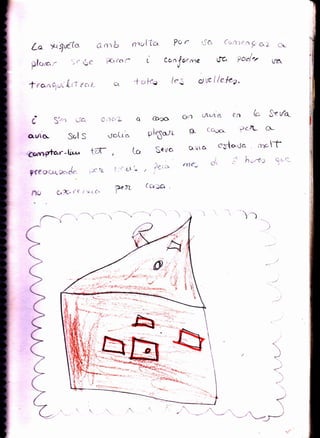 La xiqueta amb molta por va començar a
plorar sense parar i conforme va poder va
tranquilitzar a totes les ovelletes.
i se'n va anar a casa on vivia en la Seva
avia. Sols volia plegar a casa per a
comptar-liu tot, la Seva avia estava molt
preocupada per ella, feia mes de 2 hores que
no arrivava per casa.